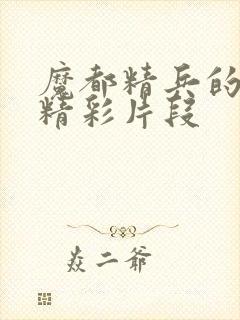 魔都精兵的
精彩片段
焱二爷